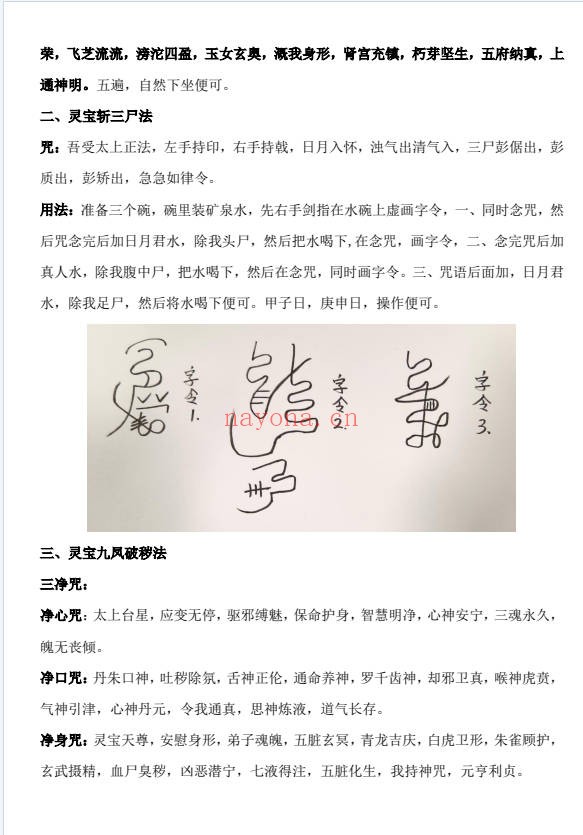 荣，飞芝流流，滂沱四盈，玉女玄奥，溉我身形，肾宫充镇，朽芽坚生，五府纳真，上
通神明。五遍，自然下坐便可。
二、灵宝斩三尸法
咒：吾受太上正法，左手持印，右手持戟，日月入怀，浊气出清气入，三尸彭倨出，彭
质出，彭矫出，急急如律令。
用法：准备三个碗，碗里装矿泉水，先右手剑指在水碗上虚画字令，一、同时念咒，然
后咒念完后加日月君水，除我头尸，然后把水喝下,在念咒，画字令，二、念完咒后加
真人水，除我腹中尸，把水喝下，然后在念咒，同时画字令。三、咒语后面加，日月君
水，除我足尸，然后将水喝下便可。甲子日，庚申日，操作便可。
字令1.
字令2.
字令3.
nayona.cn
三、灵宝九凤破秽法
三净咒：
净心咒：太上台星，应变无停，驱邪缚魅，保命护身，智慧明净，心神安宁，三魂永久，
魄无丧倾。
净口咒：丹朱口神，吐秽除氛，舌神正伦，通命养神，罗千齿神，却邪卫真，喉神虎贲，
气神引津，心神丹元，令我通真，思神炼液，道气长存。
净身咒：灵宝天尊，安慰身形，弟子魂魄，五脏玄冥，青龙吉庆，白虎卫形，朱雀顾护，
玄武摄精，血尸臭秽，凶恶潜宁，七液得注，五脏化生，我持神咒，元亨利贞。